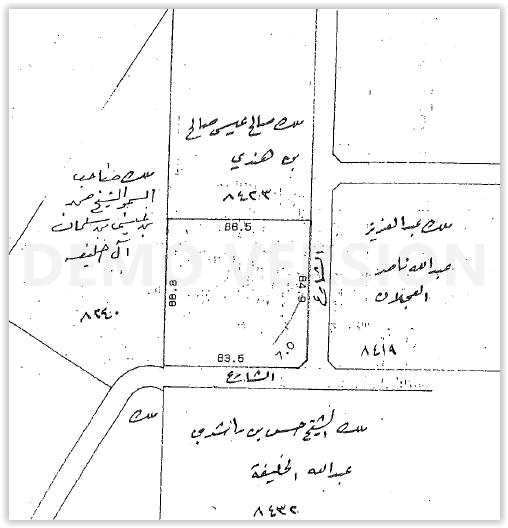 ملك صالح عيسى صالح
بن هندي
٨٤٢٣
ملك صاحب
السمو الشيخ حمد
بن عيسى بن سلمان
آل خليفه
٨٢٤٠
88.5
88.8
84.9
83.5
7.0
الشارع
الشارع
ملك عبدالعزيز
عبدالله ناصر
العجلان
٨٤١٩
ملك
ملك الشيخ حسن بن راشد بن
عبدالله الخليفة
٨٤٣٢
DEMO VERSION